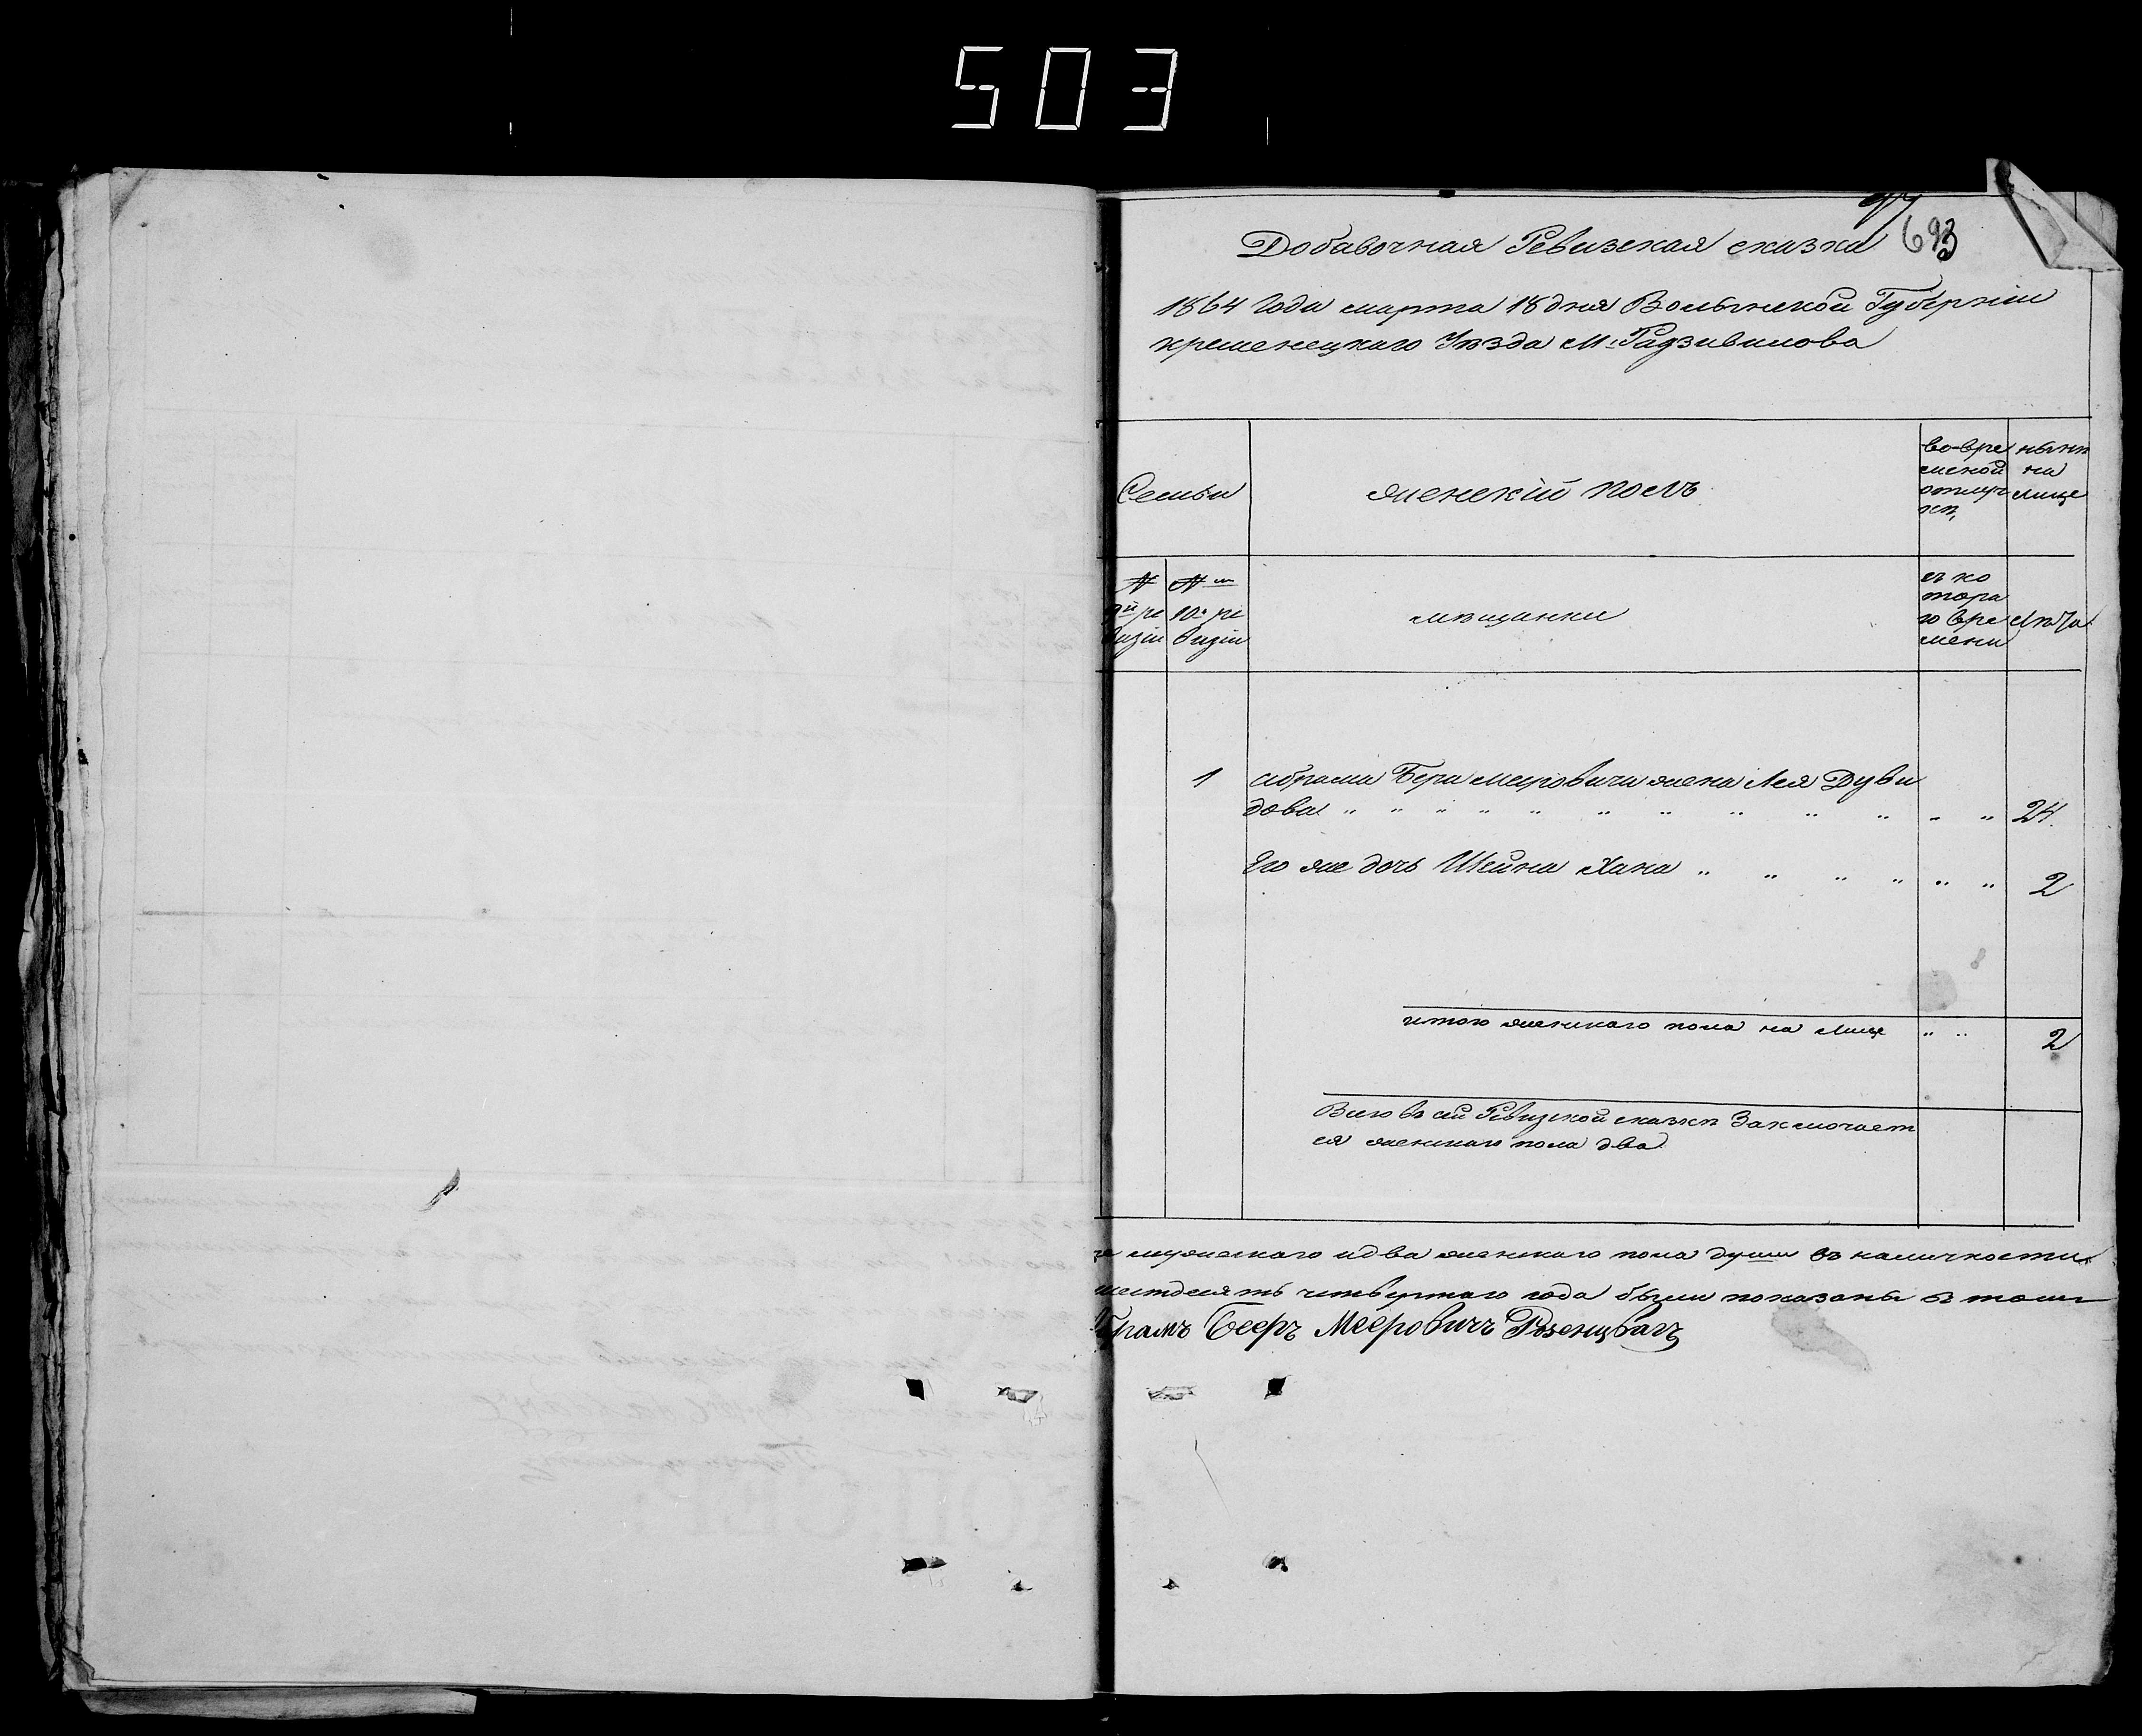 503
693
Добавочная Ревизская сказка
1864 Года марта 18 дня Волынской Губерніи
кременецкаго Уѣзда М. Радзивилова
Семьи
женскій полъ
во вре
менной
отлуч
кѣ,
нынѣ
на
лице
№
9й ре
визіи
№
10й ре
визіи
мѣщанки
съ ко
тора
го вре
мени
Лѣта
1 абрама Бера меировича жена Лея Дуви
дова " " " " " " " " " " " " 24
Его же дочь Шейна Хана " " " " " " 2
итого женскаго пола на лице " " 2
Всего въ сей Ревизской сказкѣ Заключает
ся женскаго пола два
мужескаго идва женскаго пола души въ наличности
шестдесятъ четвертаго года были показаны въ томъ
Абрамъ Бееръ Мееровичъ Розенцвагъ